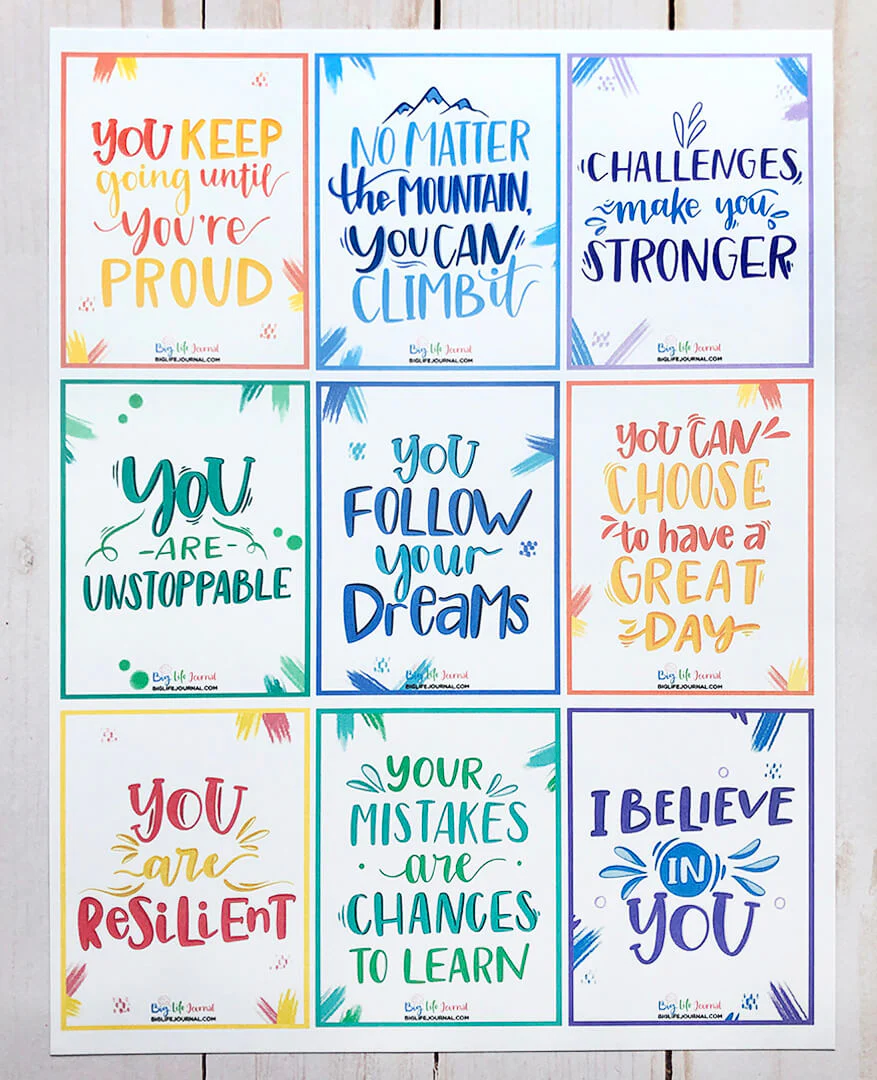 YOU KEEP
going until
You're
PROUD
Big Life Journal
BIGLIFEJOURNAL.COM
NO MATTER
the MOUNTAIN,
YOU CAN
CLIMB it
Big Life Journal
BIGLIFEJOURNAL.COM
CHALLENGES
make you
STRONGER
Big Life Journal
BIGLIFEJOURNAL.COM
YOU
-ARE-
UNSTOPPABLE
Big Life Journal
BIGLIFEJOURNAL.COM
YOU
FOLLOW
your
Dreams
Big Life Journal
BIGLIFEJOURNAL.COM
YOU CAN
CHOOSE
to have a
GREAT
DAY
Big Life Journal
BIGLIFEJOURNAL.COM
YOU
are
ReSiLiEnT
Big Life Journal
BIGLIFEJOURNAL.COM
YOUR
MISTAKES
are
CHANCES
TO LEARN
Big Life Journal
BIGLIFEJOURNAL.COM
I BELIEVE
IN
YOU
Big Life Journal
BIGLIFEJOURNAL.COM